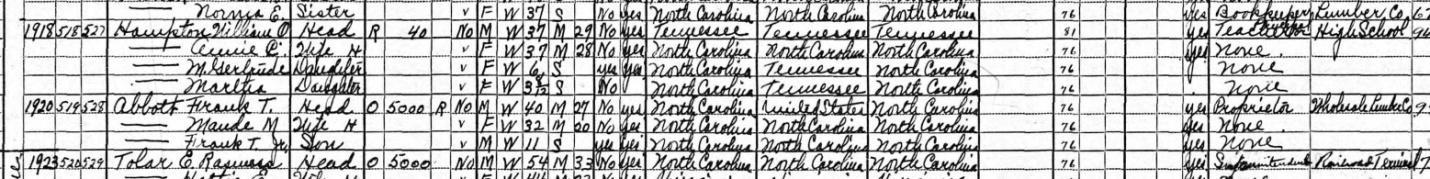 —— Norma E. Sister V F W 37 S No Yes North Carolina North Carolina North Carolina 76 yes Bookkeeper Lumber Co
1918 518 527 Hampton William O Head R 40 No M W 37 M 29 No yes Tennessee Tennessee Tennessee 81 yes Teacher High School
—— Annie C. Wife H V F W 37 M 28 No yes North Carolina North Carolina North Carolina 76 yes None.
—— M. Gertrude Daughter V F W 6 S yes yes North Carolina Tennessee North Carolina 76 None
—— Martha Daughter V F W S No North Carolina Tennessee North Carolina 76 None
1920 519 528 Abbott Frank T. Head O 5000 R No M W 40 M 27 No yes North Carolina United States North Carolina 76 yes Proprietor Wholesale Co
—— Maude M Wife H V F W 32 M 20 No Yes North Carolina North Carolina North Carolina 76 yes None.
—— Frank T. Jr. Son V M W 11 S yes yes North Carolina North Carolina North Carolina 76 yes None
1923 520 529 Tolar E. Head O 5000 No M W 54 M 33 No Yes North Carolina North Carolina North Carolina 76 yes Superintendent Railroad Terminal